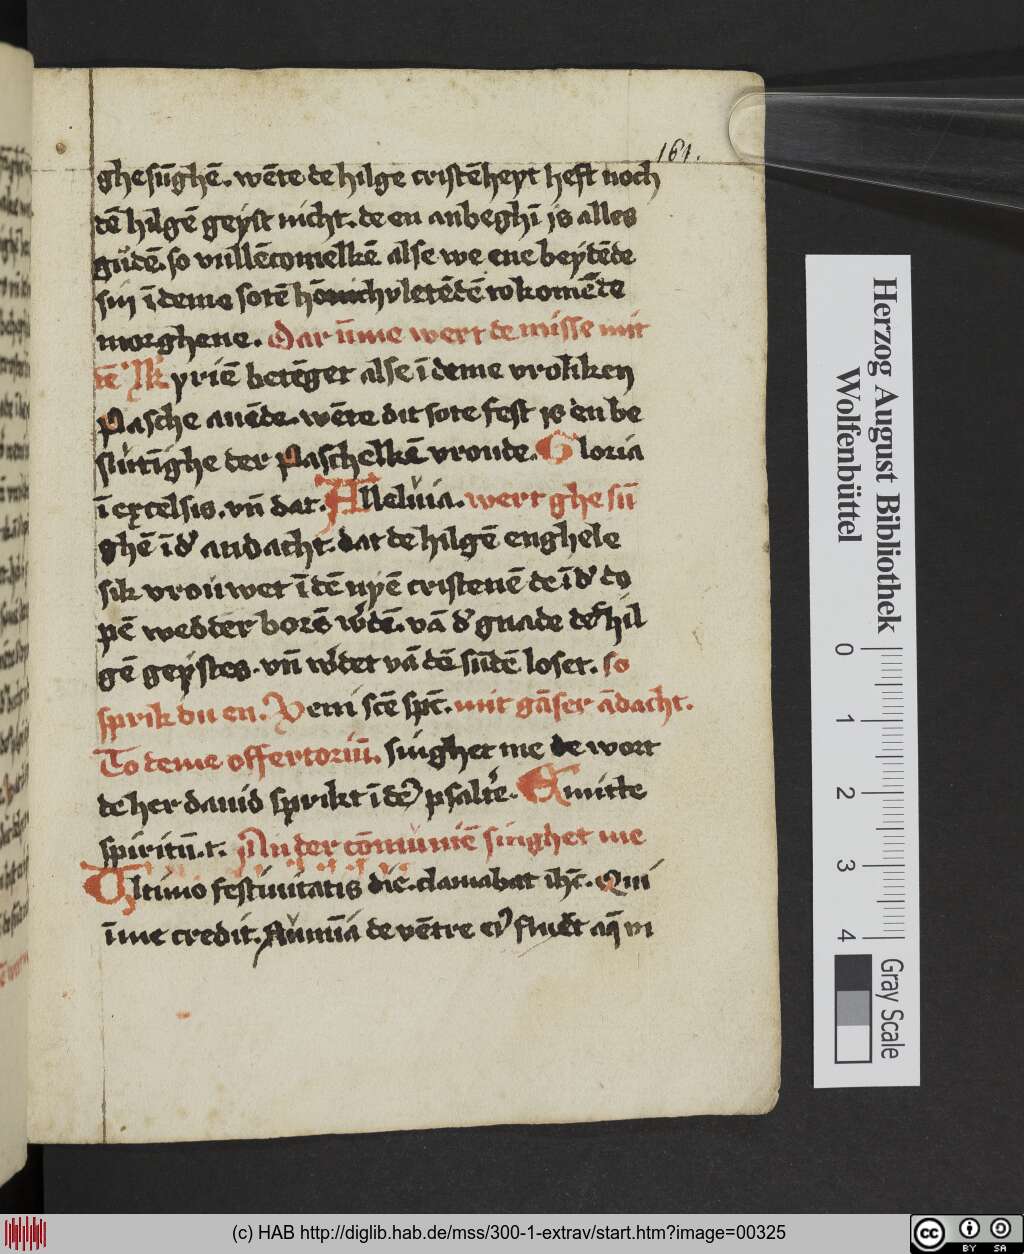 161.
ghesūghē. wēte de hilge cristēheyt heft noch
dē hilgē geyst nicht. de en anbeghī is alles
gudē. so vullēcomelkē alse we ene beydēde
sin ī deme sotē hōnichvletēdē tokomēde
morghene. Dar ūme wert de misse mit
tē kyriē betēget alse ī deme vroliken
Pasche auēde. wēte dit sote fest is en be
slutīghe der Paschelkē vroude. Gloria
ī excelsis. vn̄ dat. Alleluia. wert ghesū
ghē ī d' andacht. dat de hilgē enghele
sik vrouwet ī dē nyē cristenē de ī d' do
pē wedder borē w'dē. vā d' gnade des hil
gē geystes. vn̄ w'det vā dē sūdē loset. so
sprik du en. Veni scē spc̄. mit gāser ādacht.
To deme offertoriū. singhet me de wort
de her dauid sprikt ī dē psalt'e. Emitte
spiritū. t. An der cōmuniē singhet me
Ultimo festiuitatis die. clamabat ihc̄. Qui
ī me credit. flumīa de vētre ei' fluēt aq̄ vi
Herzog August Bibliothek
Wolfenbüttel
0 1 2 3 4
Gray Scale
(c) HAB http://diglib.hab.de/mss/300-1-extrav/start.htm?image=00325
cc BY SA